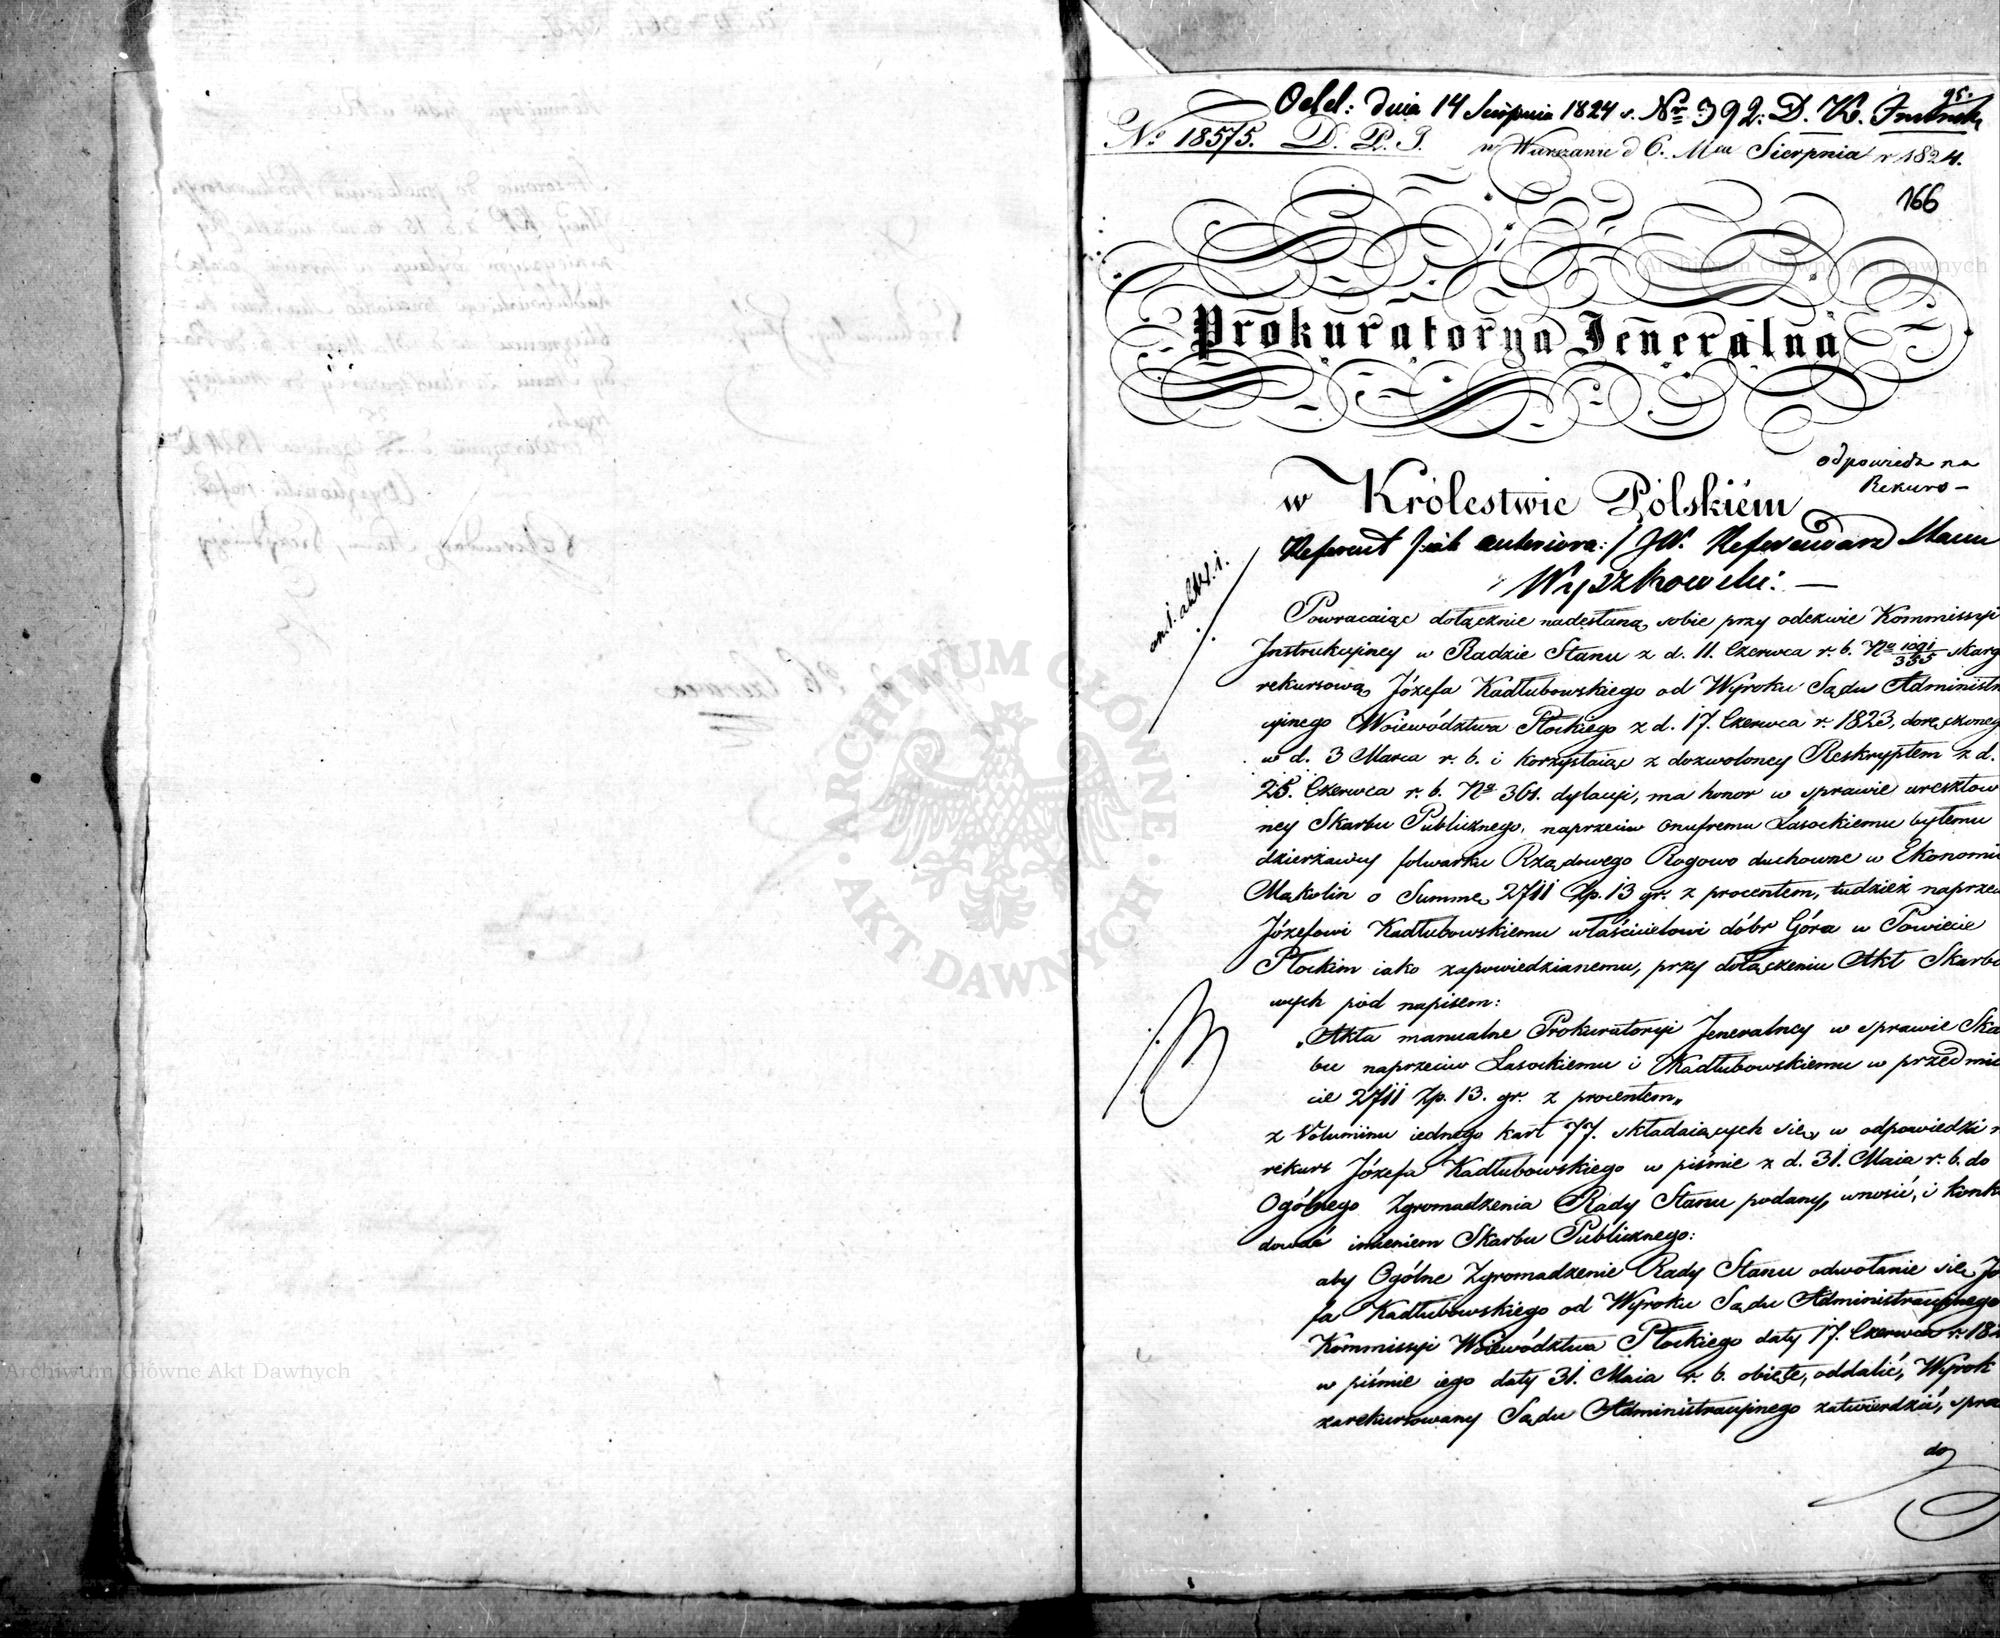 95.
Odd: dnia 14 Sierpnia 1824 r. Nr 392. D. K.
No 18575. D. P. J. w Warszawie d 6. Mca Sierpnia r 1824.
166
Prokuratorya Jeneralna
odpowiedz na
Rekurs –
w Królestwie Polskiém
Referent JW. Referendarz Stanu
Wyszkowski: —
Powracaiąc dołącznie nadesłaną sobie przy odezwie Kommissyi
Instrukcyiney w Radzie Stanu z d. 11. Czerwca r. b. No 1091/355 skarg
rekursową Józefa Kadłubowskiego od Wyroku Sądu Administra
cyinego Woiewództwa Płockiego z d. 17. Czerwca r. 1823, doręczoneg
w d. 3 Marca r. b. i korzystaiąc z dozwoloney Reskryptem z d.
25. Czerwca r. b. No 361. dylacyi, ma honor w sprawie aresztow
ney Skarbu Publicznego, naprzeciw Onufremu Lasockiemu byłemu
dzierżawcy folwarku Rządowego Rogowo duchowne w Ekonomii
Makolin o Summę 2711 Zp. 13 gr. z procentem, tudzież naprzeci
Józefowi Kadłubowskiemu właścicielowi dóbr Góra w Powiecie
Płockim iako zapowiedzianemu, przy dołączeniu Akt Skarbo
wych pod napisem:
„Akta manualne Prokuratoryi Jeneralney w sprawie Skar
bu naprzeciw Lasockiemu i Kadłubowskiemu w przedmio
cie 2711 Zp. 13. gr. z procentem„
z Voluminu iednego kart 77. składaiących się, w odpowiedzi n
rekurs Józefa Kadłubowskiego w piśmie z d. 31. Maia r. b. do
Ogólnego Zgromadzenia Rady Stanu podany, wnosić, i konklu
dować imieniem Skarbu Publicznego:
aby Ogólne Zgromadzenie Rady Stanu odwołanie się Józe
fa Kadłubowskiego od Wyroku Sądu Administracyjnego
Kommissyi Woiewództwa Płockiego daty 17. Czerwca r. 182
w piśmie iego daty 31. Maia r. b. obięte, oddalić, Wyrok
zarekursowany Sądu Administracyjnego zatwierdzić, spra
do
Archiwum Główne Akt Dawnych
ARCHIWUM GŁÓWNE AKT DAWNYCH
Archiwum Główne Akt Dawnych